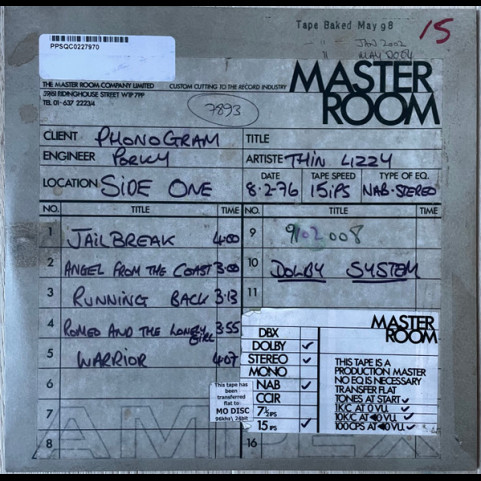 Tape Baked May 98
-- " -- JAN 2002
" MAY 2004
15
PPSQC0227970
THE MASTER ROOM COMPANY LIMITED CUSTOM CUTTING TO THE RECORD INDUSTRY
59/61 RIDINGHOUSE STREET W1P 7PP
TEL 01-637 2223/4
7893
MASTER ROOM
CLIENT PHONOGRAM TITLE
ENGINEER PORKY ARTISTE THIN LIZZY
LOCATION SIDE ONE DATE 8·2·76 TAPE SPEED 15 iPS TYPE OF EQ. NAB·STEREO
NO. TITLE TIME NO. TITLE TIME
1 JAILBREAK 4:00 9 9102 008
2 ANGEL FROM THE COAST 3:00 10 DOLBY SYSTEM
3 RUNNING BACK 3·13 11
4 ROMEO AND THE LONELY GIRL 3:55
5 WARRIOR 4:07
6
7
8 16
This tape has been transferred flat to:
MO DISC
96khz\ 24bit
AMPEX
MASTER ROOM
DBX
DOLBY ✓
STEREO ✓
MONO
NAB ✓
CCIR
7½ IPS
15 IPS ✓
THIS TAPE IS A
PRODUCTION MASTER
NO EQ IS NECESSARY
TRANSFER FLAT
TONES AT START ✓
1KC AT 0 VU ✓
10KC AT 0 VU ✓
100CPS AT 0 VU ✓